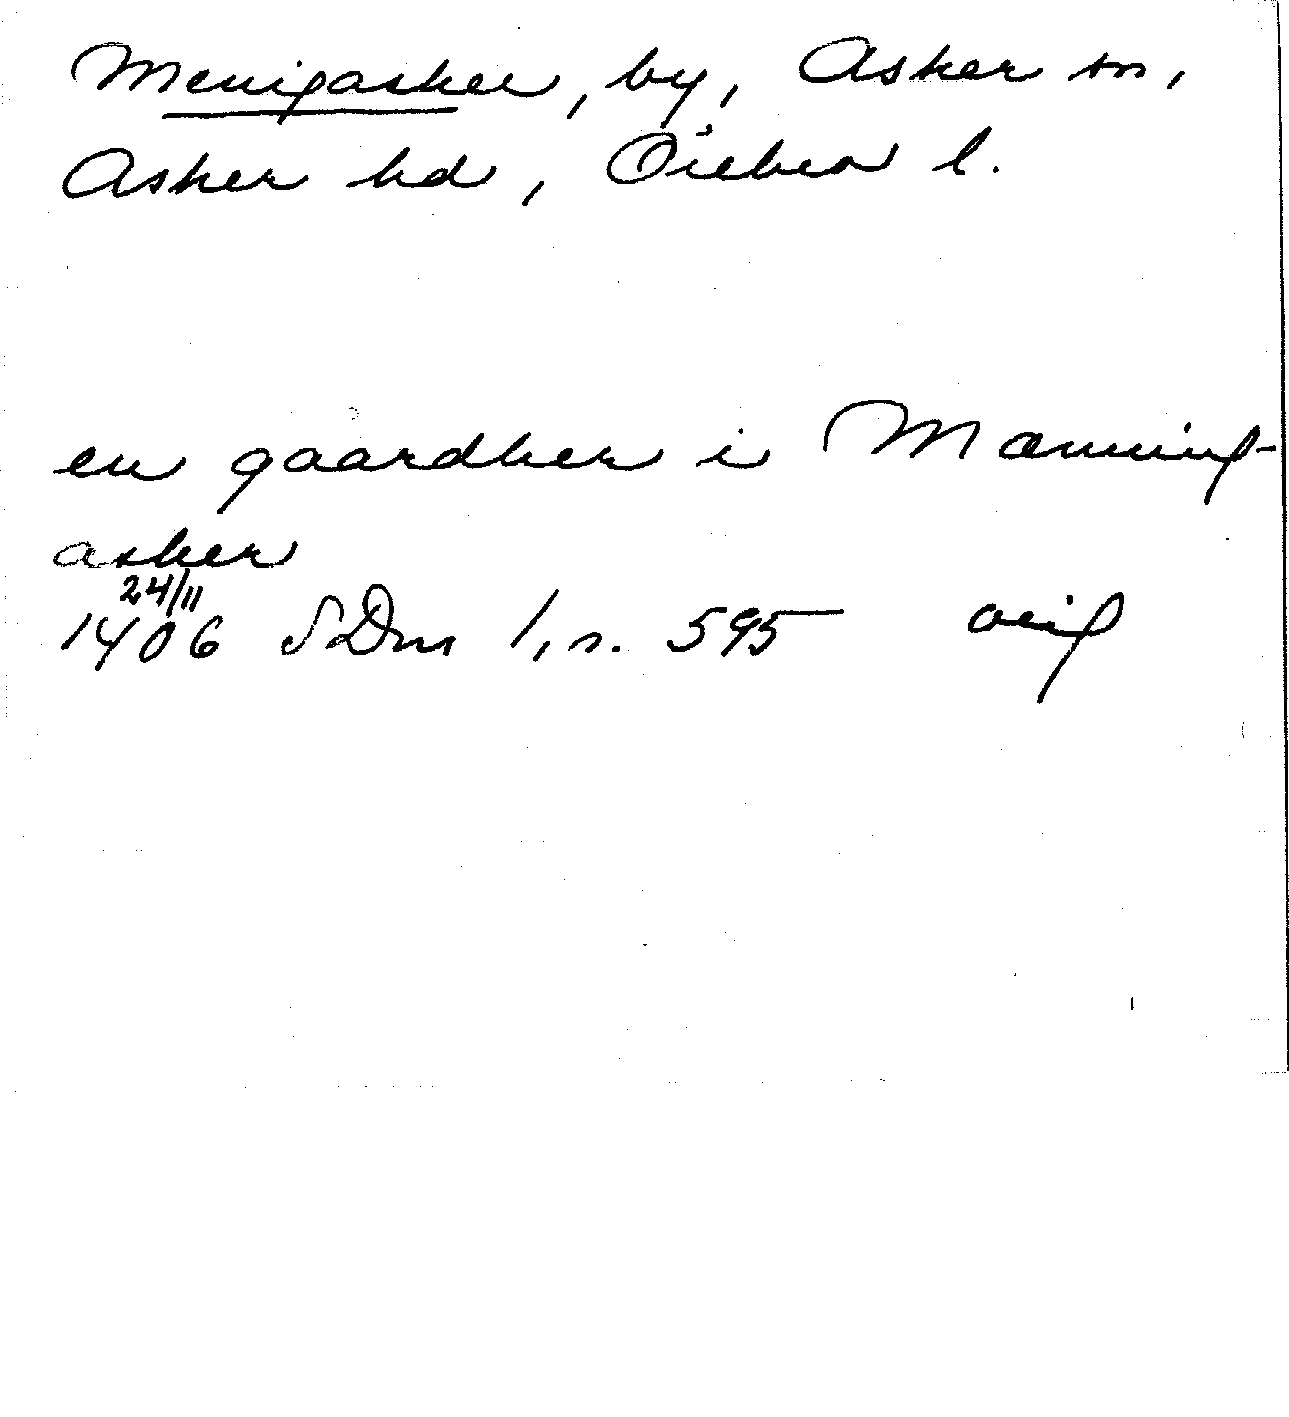 Menigasker, by, Asker sn,
Asker hd, Örebro l.
en gaardher i Mænnig-
asker
24/11
1406 SDns 1, s. 595 orig